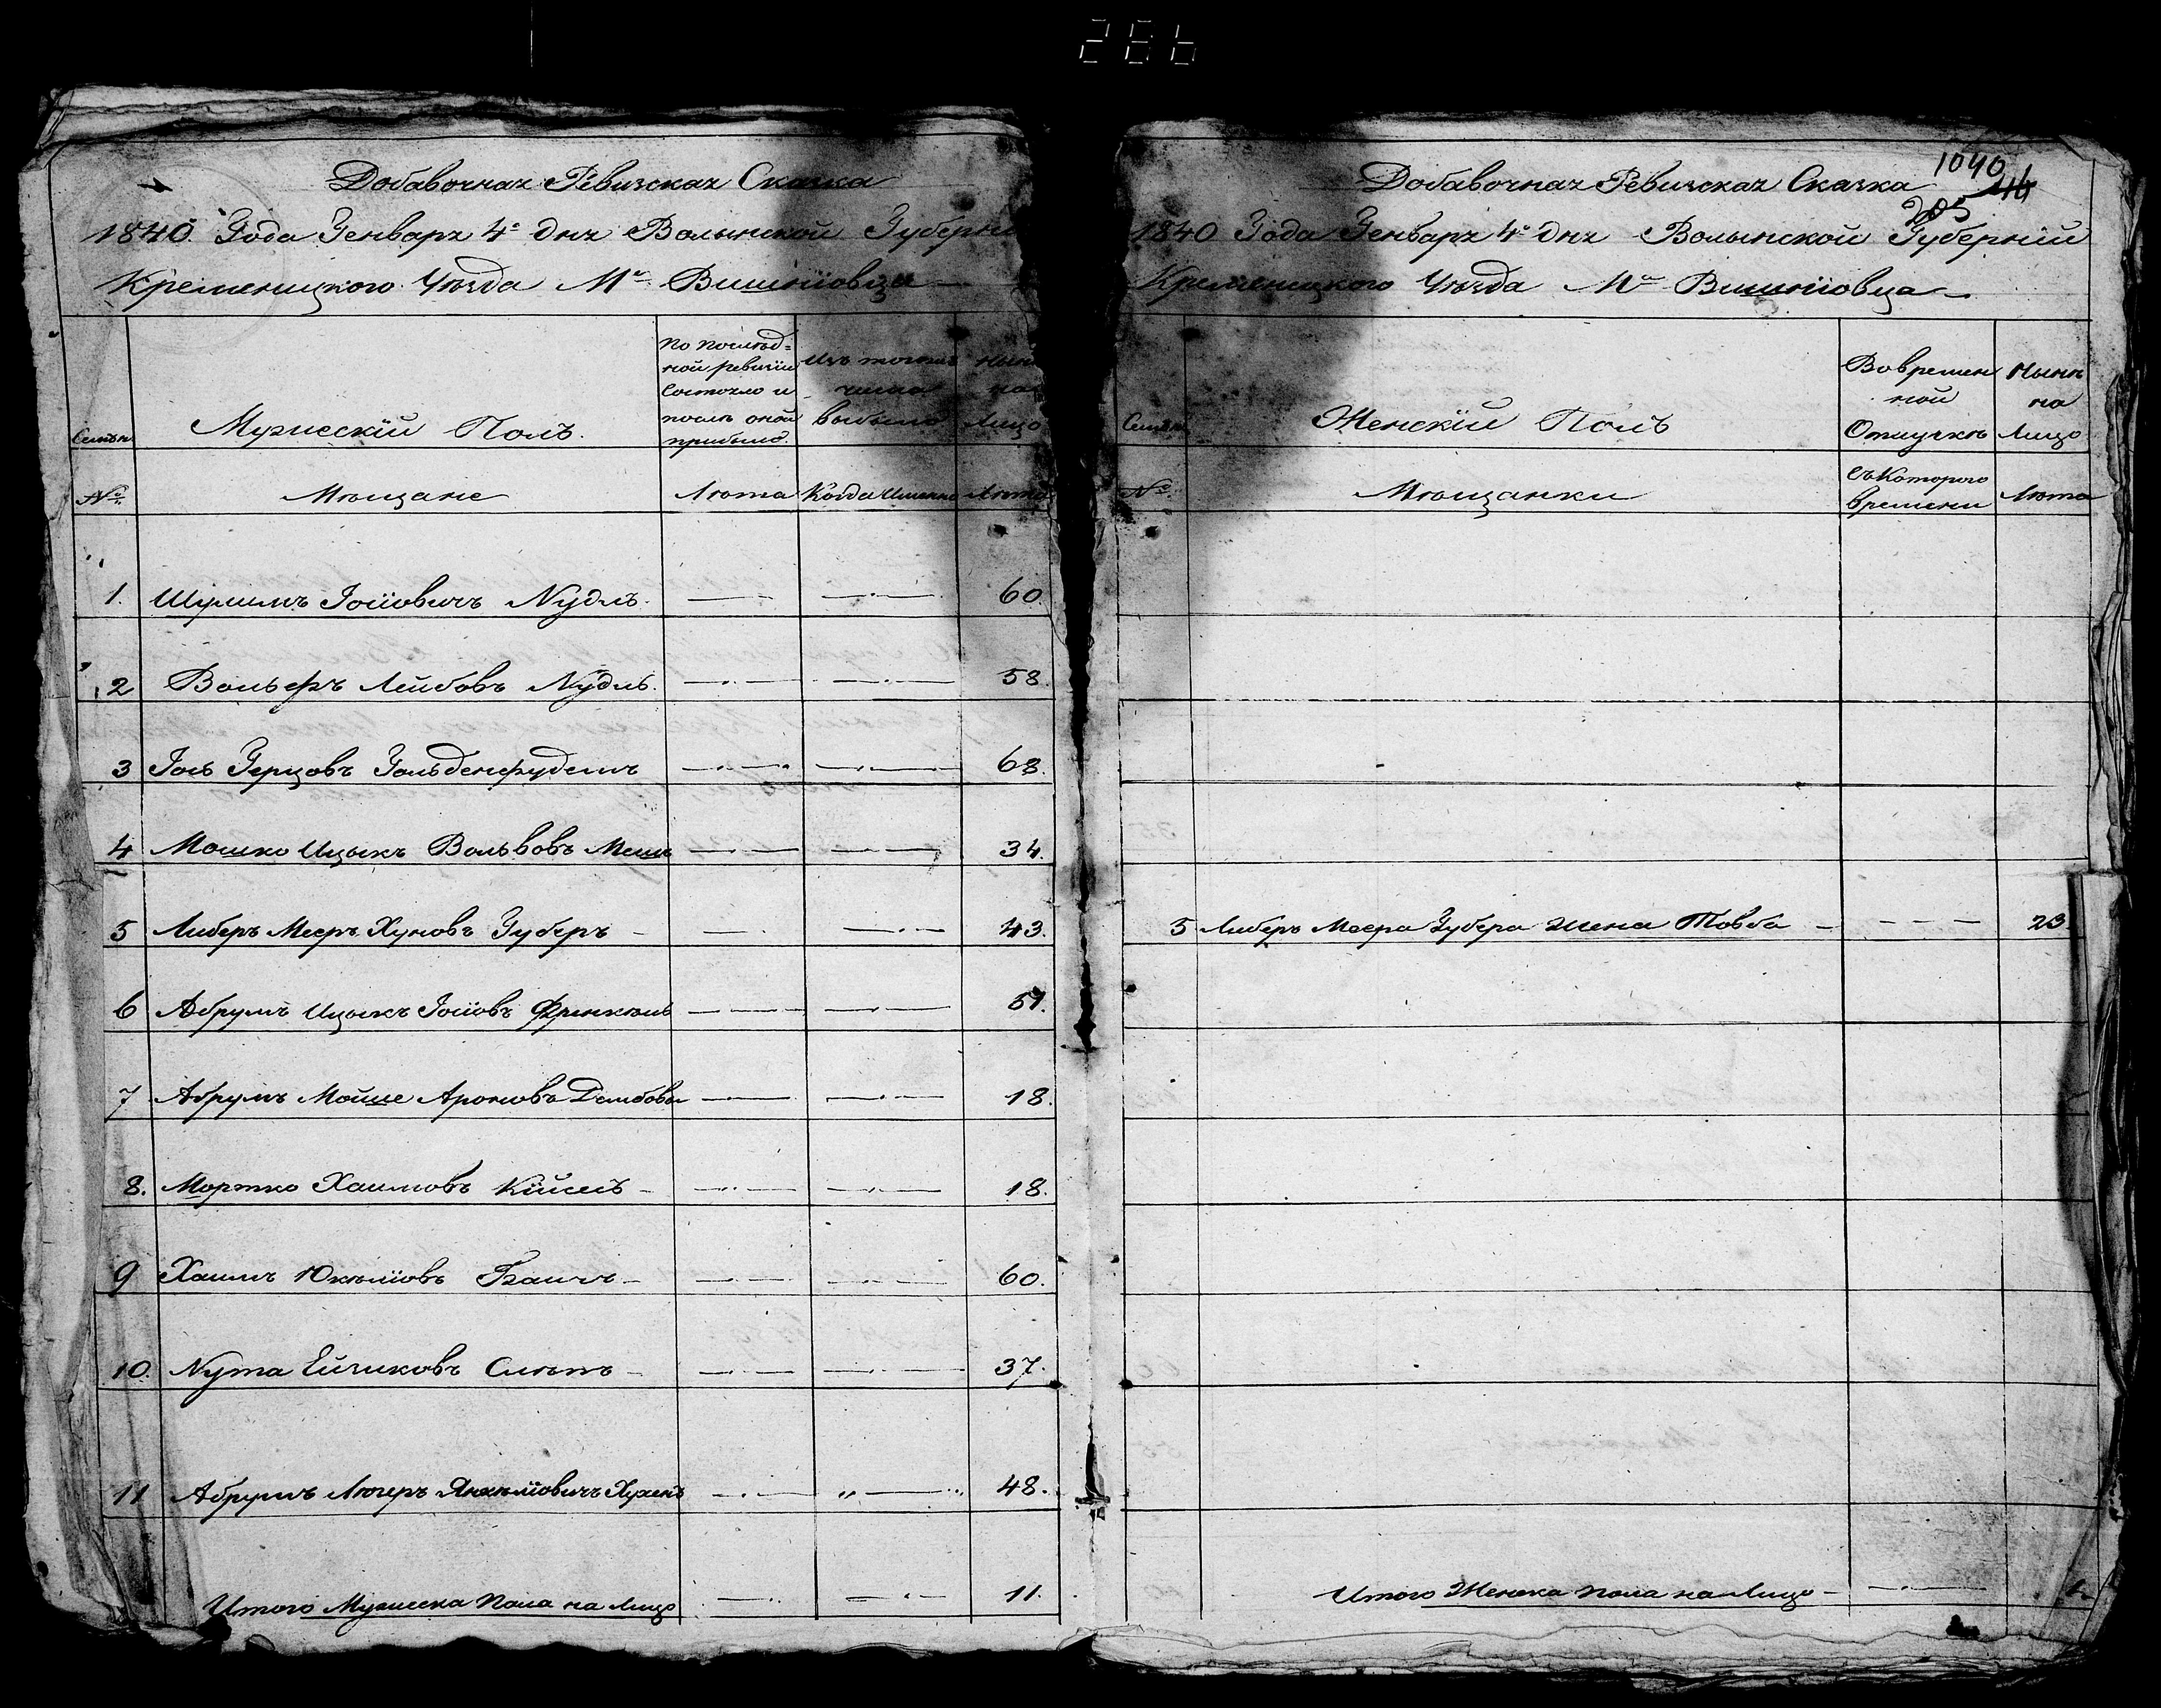 266
Добавочная Ревизская Сказка
1840. Года Генваря 4го дня Волынской Губерни
Кременицкого Уѣзда Мка Вишніовца
Семьи
Мужескій Полъ.
по послѣд=
ной ревизіи
состояло и
послѣ оной
прибыло.
Изъ того
числа
выбыло
нынѣ
на
Лицо
№
Мѣщане
Лѣта
Когда Именно
Лѣта
1. Шулимъ Іосіовичъ Nудлъ. 60.
2 Вольфъ Лейбовъ Nудль. 58.
3 Іось Герцовъ Гольденфудемъ 68.
4 Мошко Ицыкъ Вольвовъ Мешъ 34.
5 Либеръ Мееръ Хуновъ Губеръ 43.
6 Абрумъ Ицыкъ Іосіовъ Френкель 57.
7 Абрумъ Мойше Ароновъ Домбовы 18.
8. Мортко Хаимовъ Кійсель 18.
9 Хаимъ Юкеліовъ 60.
10. Nута Ейзиковъ Смѣтъ 37.
11 Абрумъ Лейзеръ Янкеліовичъ 48.
Итого Мужеска пола на Лицо 11.
1040
116
205
Добавочная Ревизская Сказка
1840 Года Генваря 4го дня Волынской Губерніи
Кременицкого Уѣзда Мка Вишніовца
Семьи
Женскій Полъ
Во времен
ной
Отлучкѣ
Нынѣ
на
Лицо
№
Мѣщанки
Съ Которого
времени
Лѣта
5 Либеръ Меера Губера жена Товба 23.
Итого Женска пола на Лицо 1.